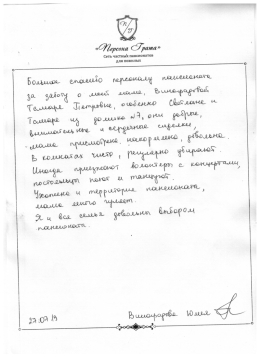 «Персона Грата»
Сеть частных пансионатов
для пожилых
Большое спасибо персоналу пансионата
за заботу о моей маме, Виноградовой
Тамаре Петровне, особенно Светлане и
Тамаре из домика №7, они добрые,
внимательные и сердечные сиделки,
мама присмотрена, накормлена, довольна.
В комнатах чисто, регулярно убирают.
Иногда приезжают волонтеры с концертами,
постояльцы поют и танцуют.
Ухожена и территория пансионата,
мама много гуляет.
Я и вся семья довольны выбором
пансионата.
27.07.19 Виноградова Юлия